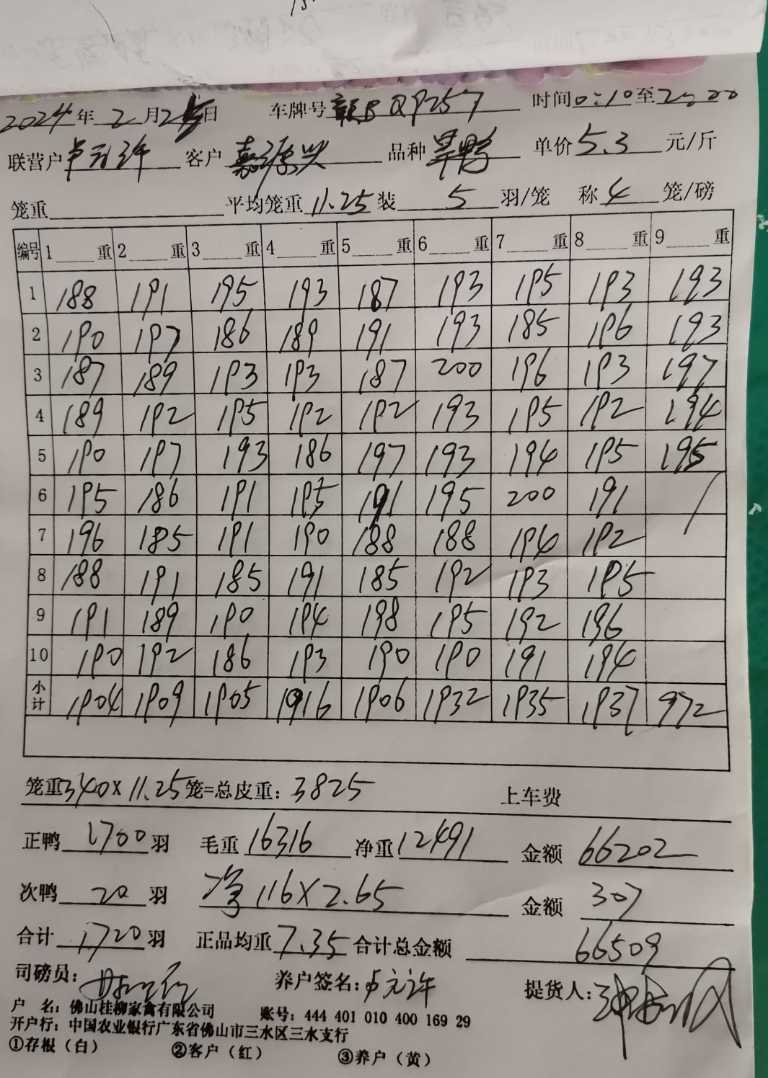 2024年2月25日 车牌号 Q9257 时间0:10至2:20
联营户卢元许 客户嘉源兴 品种旱鸭 单价5.3元/斤
笼重 平均笼重11.25装5羽/笼 称4笼/磅
编号 1 重 2 重 3 重 4 重 5 重 6 重 7 重 8 重 9 重
1 188 191 195 193 187 193 195 193 193
2 190 197 186 189 191 193 185 196 193
3 187 189 193 193 187 200 196 193 197
4 189 192 195 192 192 193 195 192 194
5 190 197 193 186 197 193 194 195 195
6 195 186 191 195 191 195 200 191 /
7 196 185 191 190 188 188 194 192
8 188 191 185 191 185 192 193 195
9 191 189 190 194 198 195 192 196
10 190 192 186 193 190 190 191 194
小计 1904 1909 1905 1916 1906 1932 1935 1937 972
笼重340×11.25笼=总皮重：3825 上车费
正鸭1700羽 毛重16316 净重12491 金额66202
次鸭20羽 净116×2.65 金额307
合计1720羽 正品均重7.35 合计总金额66509
司磅员： 养户签名：卢元许 提货人：
户 名：佛山桂柳家禽有限公司 账号：444 401 010 400 169 29
开户行：中国农业银行广东省佛山市三水区三水支行
①存根（白） ②客户（红） ③养户（黄）